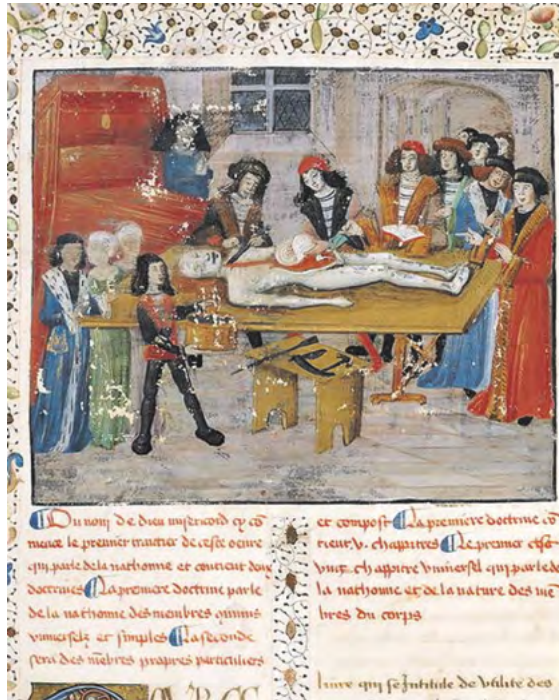 Du nom de dieu misericord cy cō
mence le premier traictier de ceste oeuure
qui parle de la nathomie et contient doux
doctrines La premiere doctrine parle
de la nathomie des membres
vniuerselz et simples La seconde
sera des mēbres propres particuliers
et compost La premiere doctrine cō
tient .v. chappitres Le premier est
chappitre vniuersel qui parle de
la nathomie et de la nature des mē
bres du corps
liure qui se Intitule de vtilite des